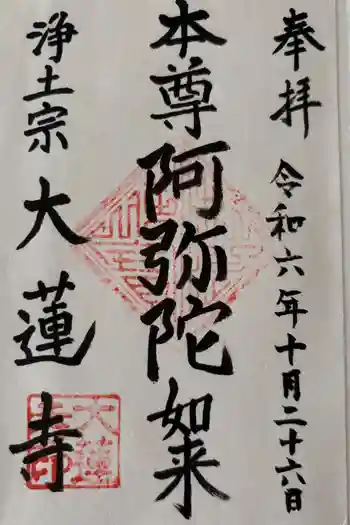 奉拝 令和六年十月二十六日
本尊 阿弥陀如来
浄土宗 大蓮寺
大蓮
寺印